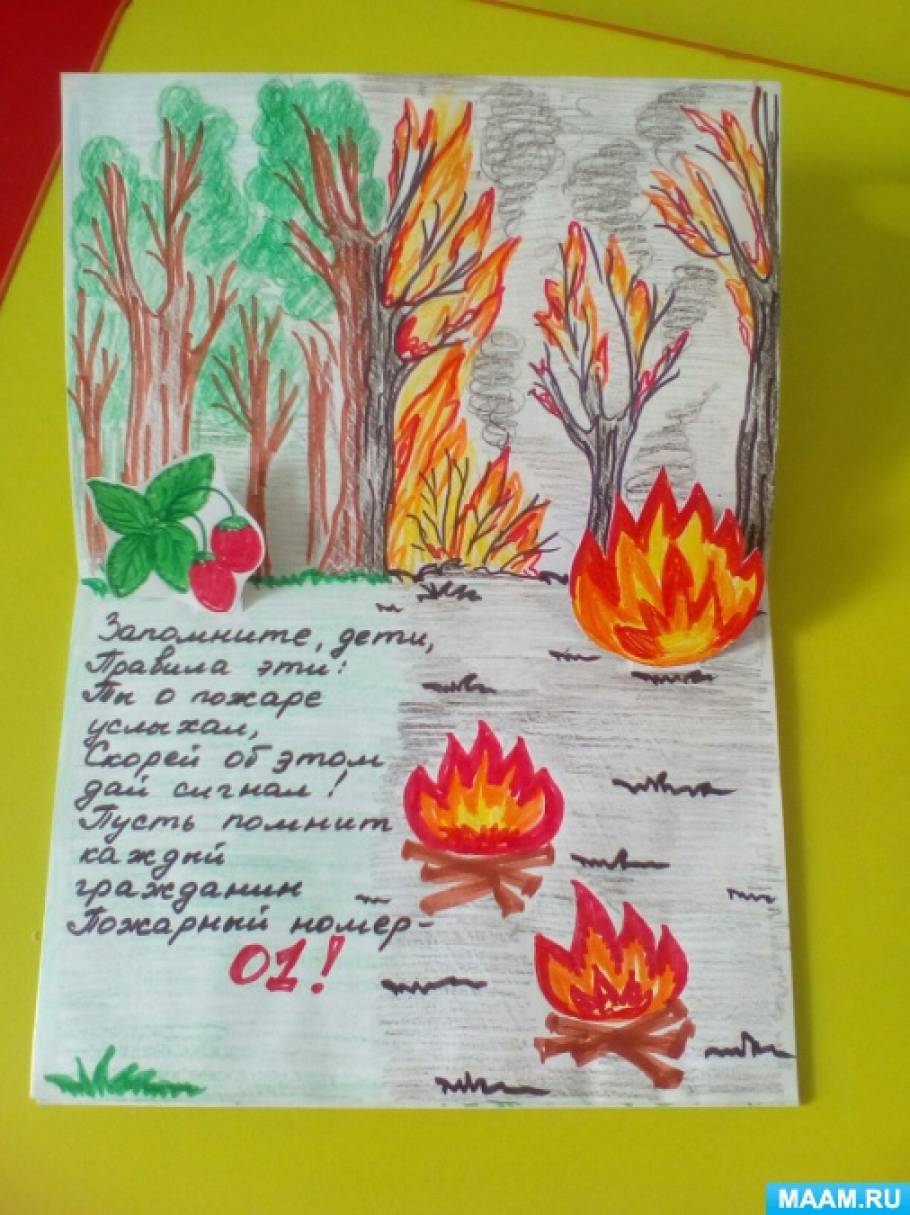 Запомните, дети,
Правила эти:
Ты о пожаре
услыхал,
Скорей об этом
дай сигнал!
Пусть помнит
каждый
гражданин
Пожарный номер-
01!
MAAM.RU